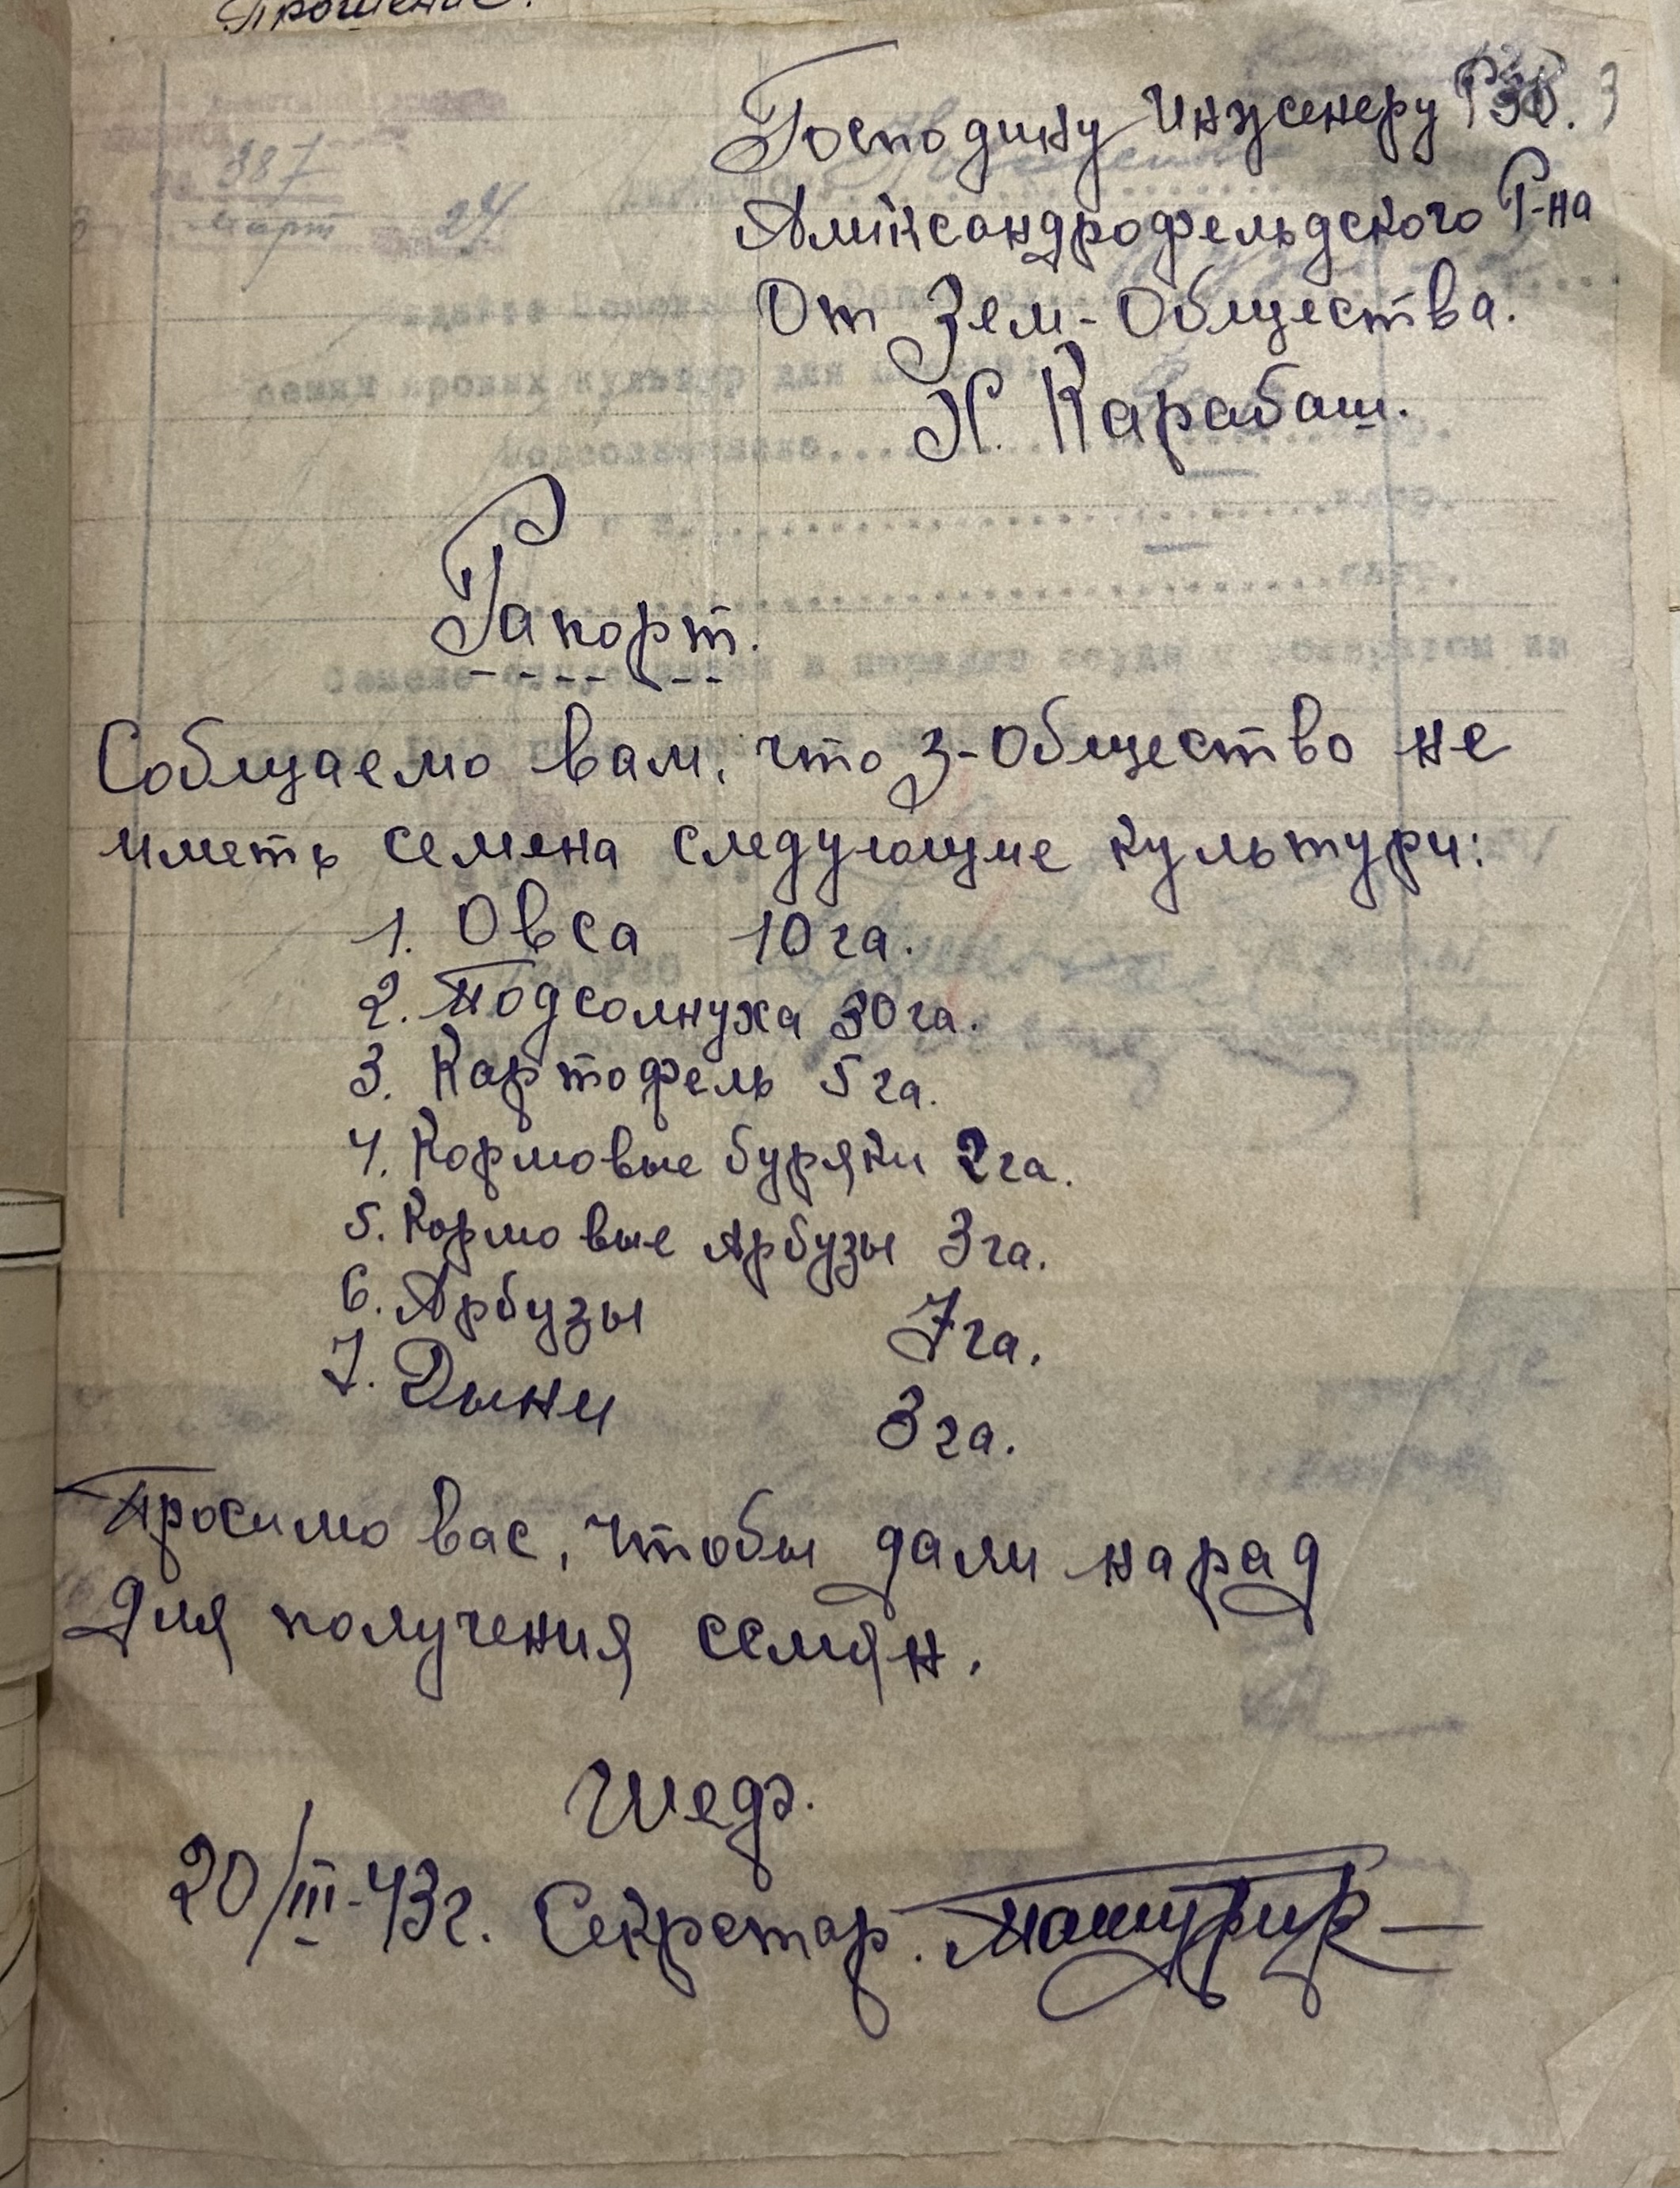 Прошение.
Господину Инженеру РЗО. 3
Александрофельдского Р-на
От Зем-Общества.
Н. Карабаш.
387
март 24
Рапорт.
Сообщаемо вам, что З-Общество не
иметь семена следующие культури:
1. Овса 10 га.
2. Подсолнуха 30 га.
3. Картофель 5 га.
4. Кормовые буряки 2 га.
5. Кормовые Арбузы 3 га.
6. Арбузы 7 га.
7. Дыни 3 га.
Просимо вас, чтобы дали нарад
Для получения семян.
Шедз.
20/III-43 г. Секретар.